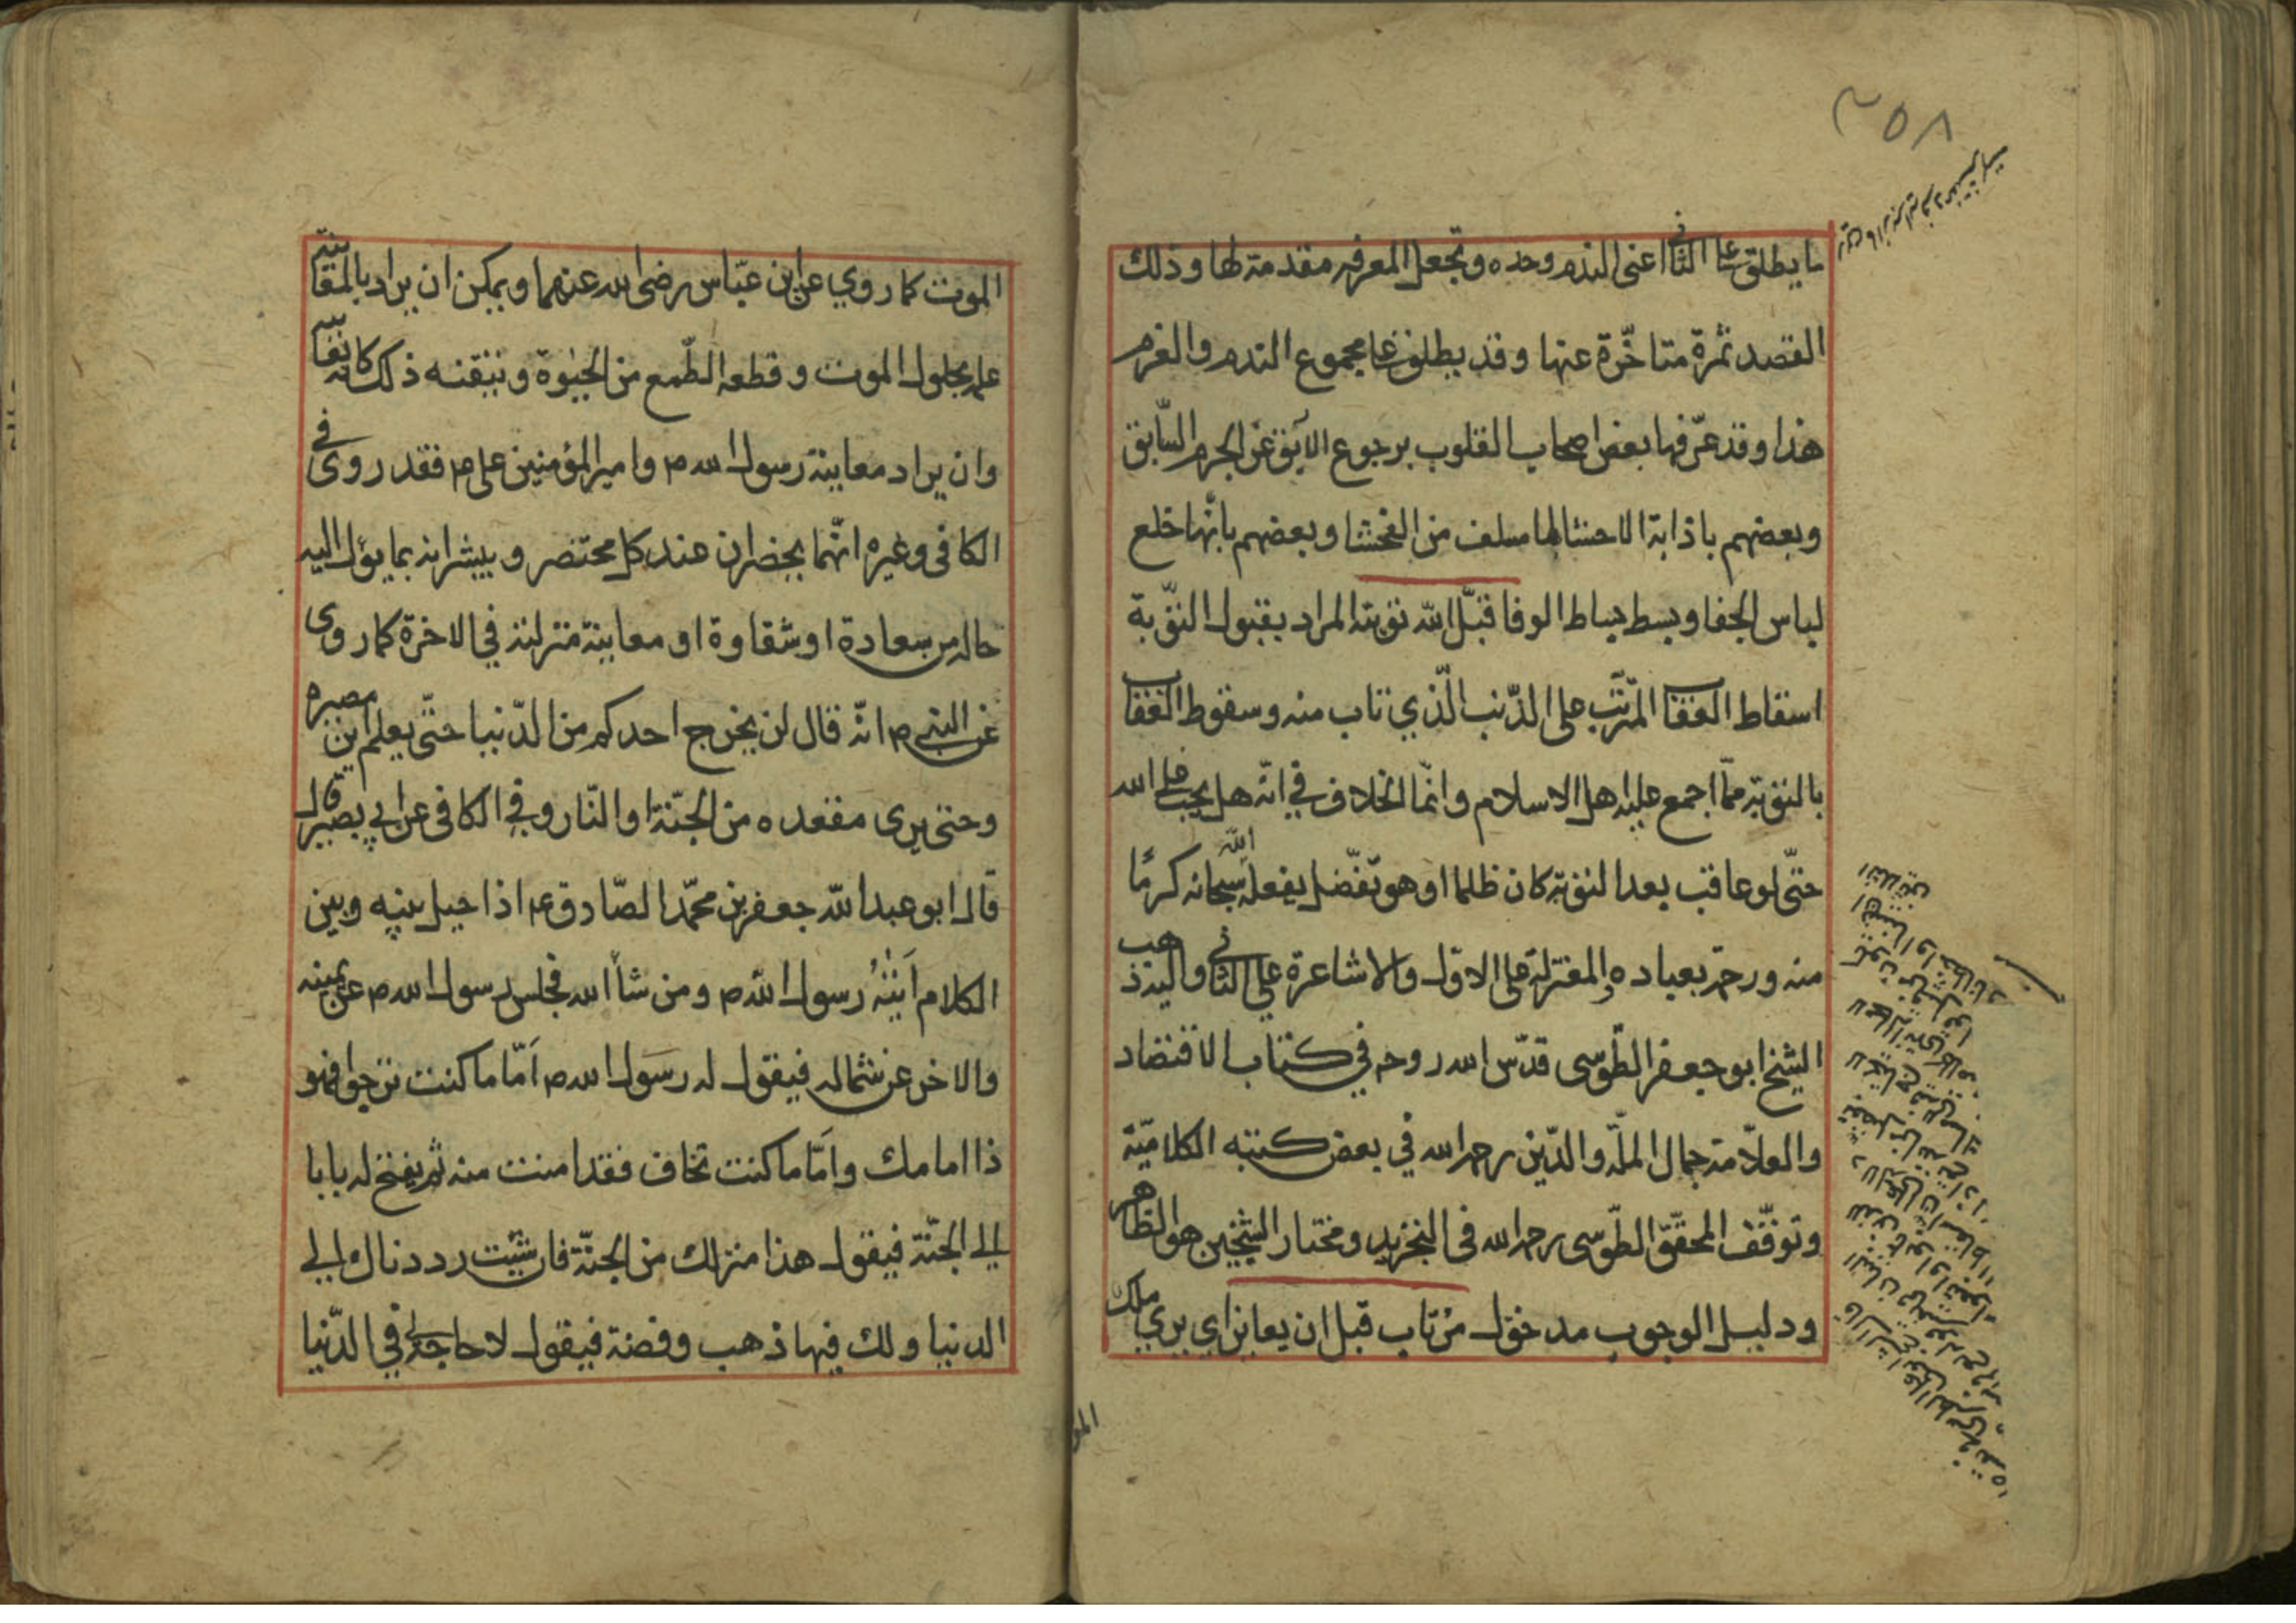 ٢٥٨
ما يطلق على الثاني اعني الندم وحده وتجعل المعرفه مقدمة لها وذلك
القصد ثمرة متاخّرة عنها وقد يطلق على مجموع الندم والعزم
هذا وقد عرّفها بعض اصحاب القلوب برجوع الآبق عن الجرم السّابق
وبعضهم باذابة الاحشا لما سلف من الفحشا وبعضهم بانّها خلع
لباس الجفا وبسط بساط الوفا قبّل الله توبته المراد بقبول التّوبة
اسقاط العقاب المترتّب على الذّنب الّذي تاب منه وسقوط العقاب
بالتوبة ممّا اجمع عليه اهل الاسلام وانّما الخلاف في انّه هل يجب على الله
حتّى لو عاقب بعد التوبة كان ظلما او هو تفضّل يفعله الله سبحانه كرمًا
منه ورحمة بعباده والمعتزلة على الاوّل والاشاعرة على الثاني واليه ذهب
الشيخ ابو جعفر الطّوسى قدّس الله روحه في كتاب الاقتصاد
والعلاّمة جمال الملّة والدّين رحمه الله في بعض كتبه الكلاميّة
وتوقّف المحقّق الطّوسى رحمه الله فى التجريد ومختار الشيخين هو الظاهر
ودليل الوجوب مدخول من تاب قبل ان يعاين اي يرى ملك
الموت كما روي عن ابن عبّاس رضى الله عنهما ويمكن ان يراد بالمعاينة
علمه بحلول الموت وقطعه الطّمع من الحيٰوة وتيقنه ذلك كانه يعاينه
وان يراد معاينة رسول الله ص وامير المؤمنين على ع م فقد روى في
الكافى وغيره انّهما يحضران عند كل محتضر ويبشرانه بما يؤل اليه
حاله من سعادة او شقاوة او معاينة منزلته في الاخرة كما روى
عن النبى ص انّه قال لن يخرج احدكم من الدّنيا حتّى يعلم اين مصيره
وحتى يرى مقعده من الجنّة او النّار وفي الكافى عن ابي بصير قال
قال ابو عبدالله جعفر بن محمّد الصّادق ع م اذا حيل بينه وبين
الكلام اَتٰيهُ رسول الله ص ومن شاٴ الله فجلس رسول الله ص عن يمينه
والاخر عن شماله فيقول له رسول الله ص اَمّا ما كنت ترجوا فهو
ذا امامك وامّا ما كنت تخاف فقد امنت منه ثم يفتح له بابا
الى الجنّة فيقول هذا منزلك من الجنّة فان شئت رددناك الى
الدنيا ولك فيها ذهب وفضة فيقول لا حاجة لى في الدّنيا